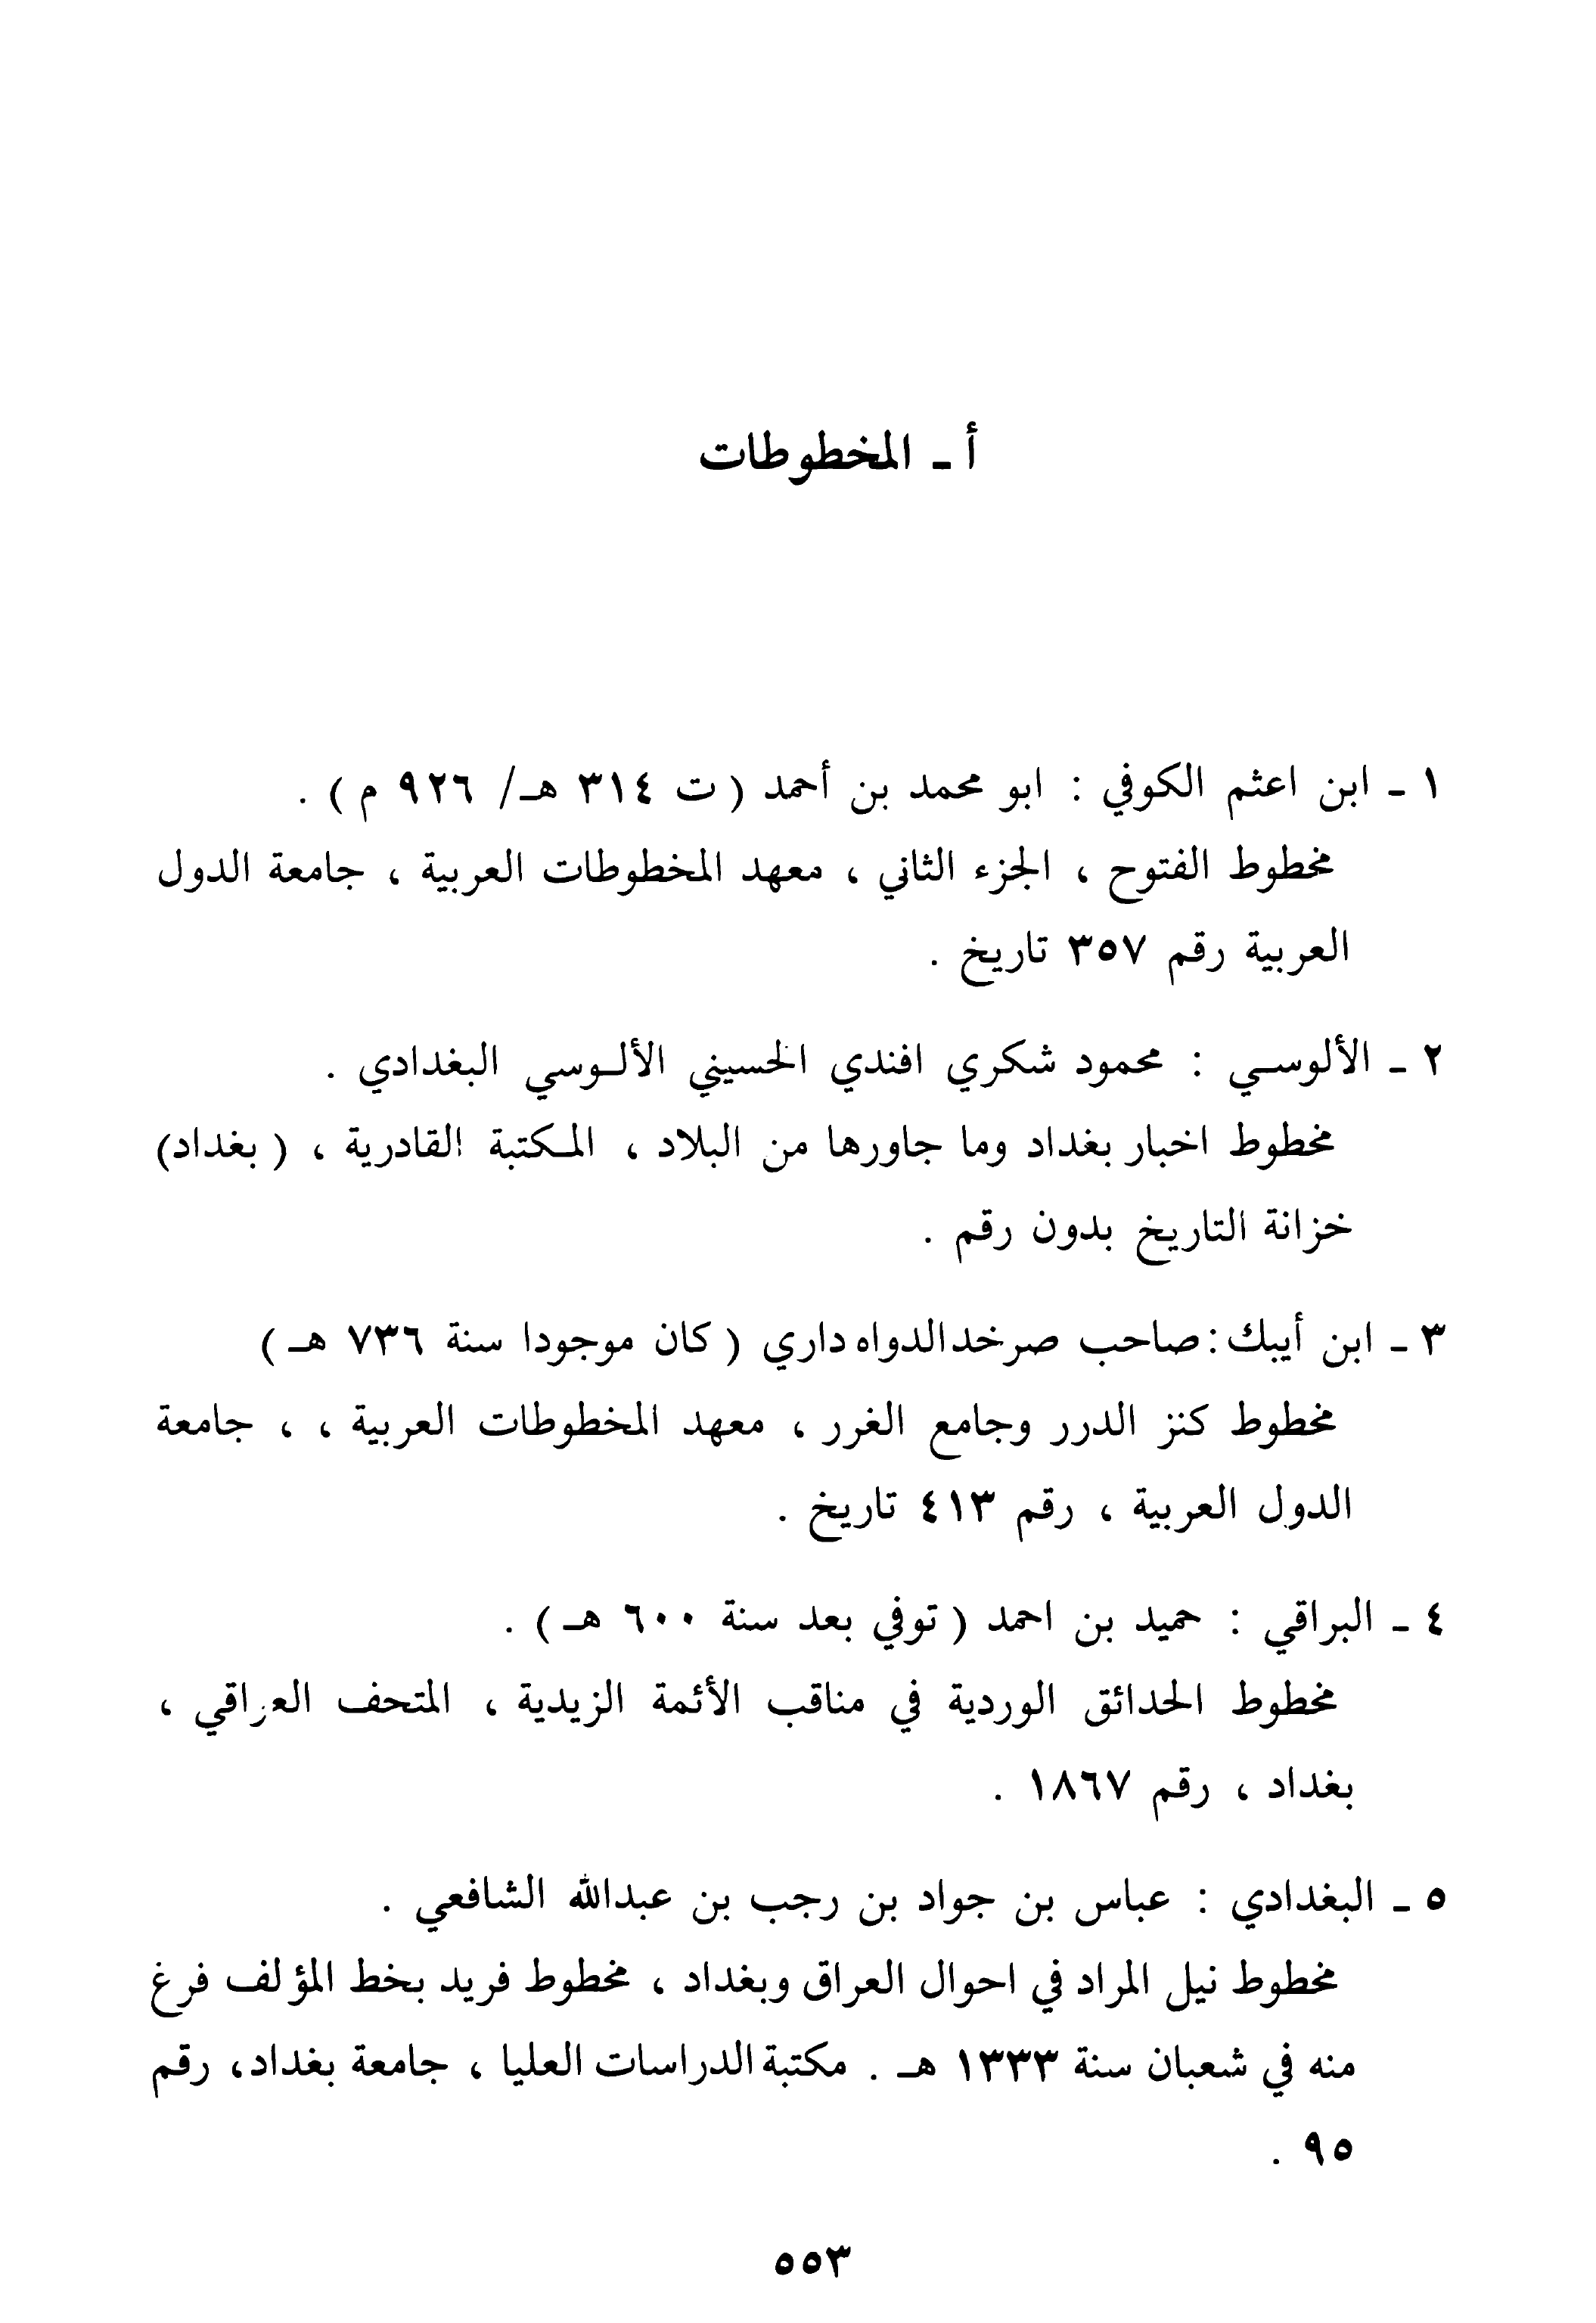 أ ـ المخطوطات
١ ـ ابن اعثم الكوفي : ابو محمد بن أحمد ( ت ٣١٤ هـ/ ٩٢٦ م ) .
مخطوط الفتوح ، الجزء الثاني ، معهد المخطوطات العربية ، جامعة الدول
العربية رقم ٣٥٧ تاريخ .
٢ ـ الألوسـي : محمود شكري افندي الحسيني الألـوسي البغدادي .
مخطوط اخبار بغداد وما جاورها من البلاد ، المـكتبة القادرية ، ( بغداد)
خزانة التاريخ بدون رقم .
٣ ـ ابن أيبك : صاحب صرخد الدواه داري ( كان موجودا سنة ٧٣٦ هـ )
مخطوط كنز الدرر وجامع الغرر ، معهد المخطوطات العربية ، ، جامعة
الدول العربية ، رقم ٤١٣ تاريخ .
٤ ـ البراقي : حميد بن احمد ( توفي بعد سنة ٦٠٠ هـ ) .
مخطوط الحدائق الوردية في مناقب الأئمة الزيدية ، المتحف العراقي ،
بغداد ، رقم ١٨٦٧ .
٥ ـ البغدادي : عباس بن جواد بن رجب بن عبدالله الشافعي .
مخطوط نيل المراد في احوال العراق وبغداد ، مخطوط فريد بخط المؤلف فرغ
منه في شعبان سنة ١٣٣٣ هـ . مكتبة الدراسات العليا ، جامعة بغداد، رقم
٩٥ .
٥٥٣